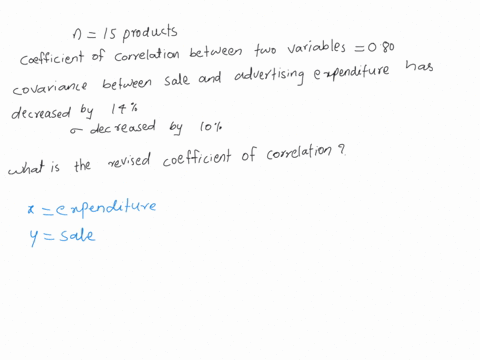 n = 15 products
coefficient of correlation between two variables = 0.80
covariance between sale and advertising expenditure has
decreased by 14%
σ decreased by 10%
what is the revised coefficient of correlation?
x = expenditure
y = sale